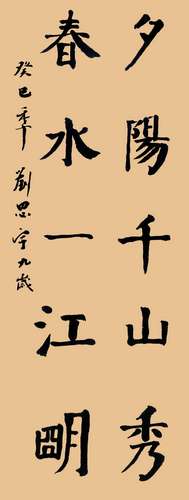 夕陽千山秀
春水一江明
癸巳季劉思宇九歲